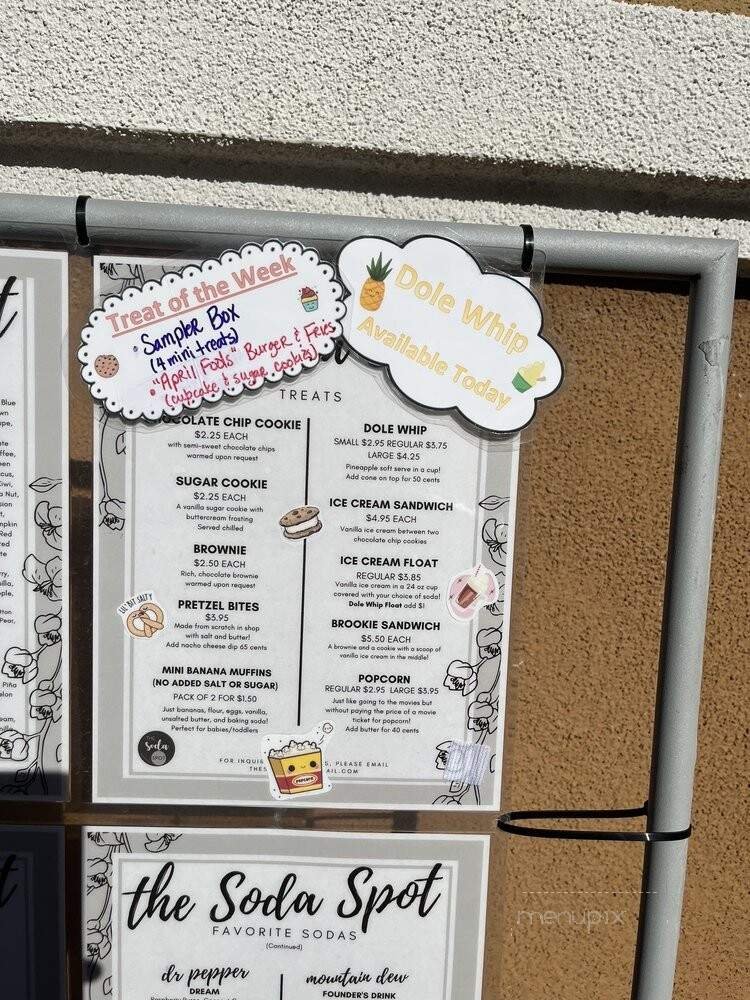 Treat of the Week
• Sampler Box
(4 mini treats)
• "April Fools" Burger & Fries
(cupcake & sugar cookies)
Dole Whip
Available Today
TREATS
CHOCOLATE CHIP COOKIE
$2.25 EACH
with semi-sweet chocolate chips
warmed upon request
SUGAR COOKIE
$2.25 EACH
A vanilla sugar cookie with
buttercream frosting
Served chilled
BROWNIE
$2.50 EACH
Rich, chocolate brownie
warmed upon request
LIL BIT SALTY
PRETZEL BITES
$3.95
Made from scratch in shop
with salt and butter!
Add nacho cheese dip 65 cents
MINI BANANA MUFFINS
(NO ADDED SALT OR SUGAR)
PACK OF 2 FOR $1.50
Just bananas, flour, eggs, vanilla,
unsalted butter, and baking soda!
Perfect for babies/toddlers
DOLE WHIP
SMALL $2.95 REGULAR $3.75
LARGE $4.25
Pineapple soft serve in a cup!
Add cone on top for 50 cents
ICE CREAM SANDWICH
$4.95 EACH
Vanilla ice cream between two
chocolate chip cookies
ICE CREAM FLOAT
REGULAR $3.85
Vanilla ice cream in a 24 oz cup
covered with your choice of soda!
Dole Whip Float add $1
BROOKIE SANDWICH
$5.50 EACH
A brownie and a cookie with a scoop of
vanilla ice cream in the middle!
POPCORN
REGULAR $2.95 LARGE $3.95
Just like going to the movies but
without paying the price of a movie
ticket for popcorn!
Add butter for 40 cents
THE
Soda
SPOT
POPCORN
FOR INQUI S, PLEASE EMAIL
THES AIL.COM
the Soda Spot
FAVORITE SODAS
(Continued)
dr pepper
DREAM
mountain dew
FOUNDER'S DRINK
menupix